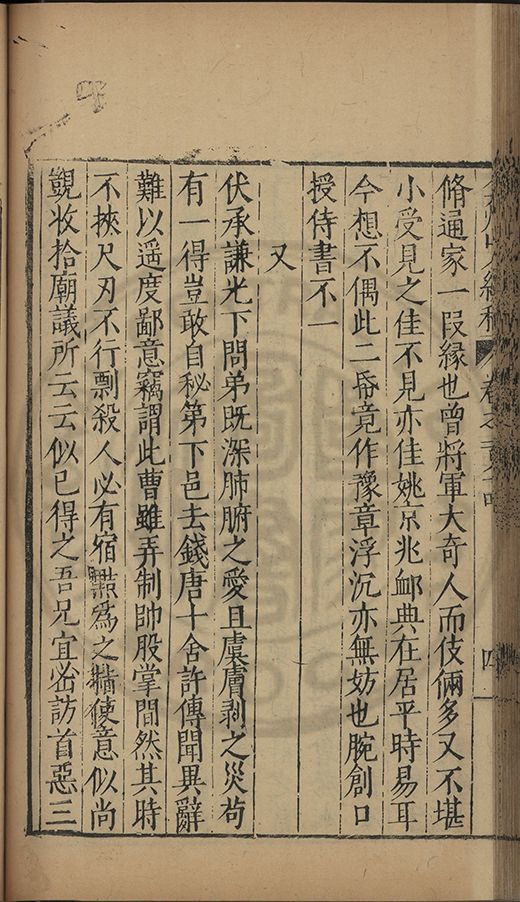 脩通家一段緣也曾將軍大奇人而伎倆多又不堪
小受見之佳不見亦佳姚京兆卹典在居平時易耳
今想不偶此二昏竟作豫章浮沉亦無妨也腕創口
授侍書不一
又
伏承謙光下問弟既深肺腑之愛且虞膚剥之災苟
有一得豈敢自秘第下邑去錢唐十舍許傳聞異辭
難以遥度鄙意竊謂此曹雖弄制帥股掌間然其時
不挾尺刃不行剽殺人必有宿黠為之指使意似尚
覬收拾廟議所云云似已得之吾兄宜密訪首惡三